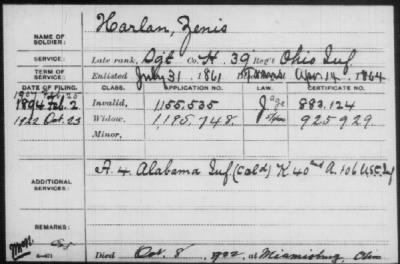 Harlan, Zenis
NAME OF SOLDIER:
SERVICE: Late rank, Sgt Co. H. 39 Reg't Ohio Inf
TERM OF SERVICE: Enlisted July 31 1861 Apr. 14, 1864
DATE OF FILING. CLASS. APPLICATION NO. LAW. CERTIFICATE NO.
1907
1894 Feb. 2 Invalid, 1155.535 age 883.124
1922 Oct. 23 Widow, 1195.748 925929
Minor,
ADDITIONAL SERVICES: A. 4. Alabama Inf (Cold) K. 40 A. 106 U.S.C. Inf
REMARKS:
Died Oct. 8, 1922, at Miamisburg, Ohio